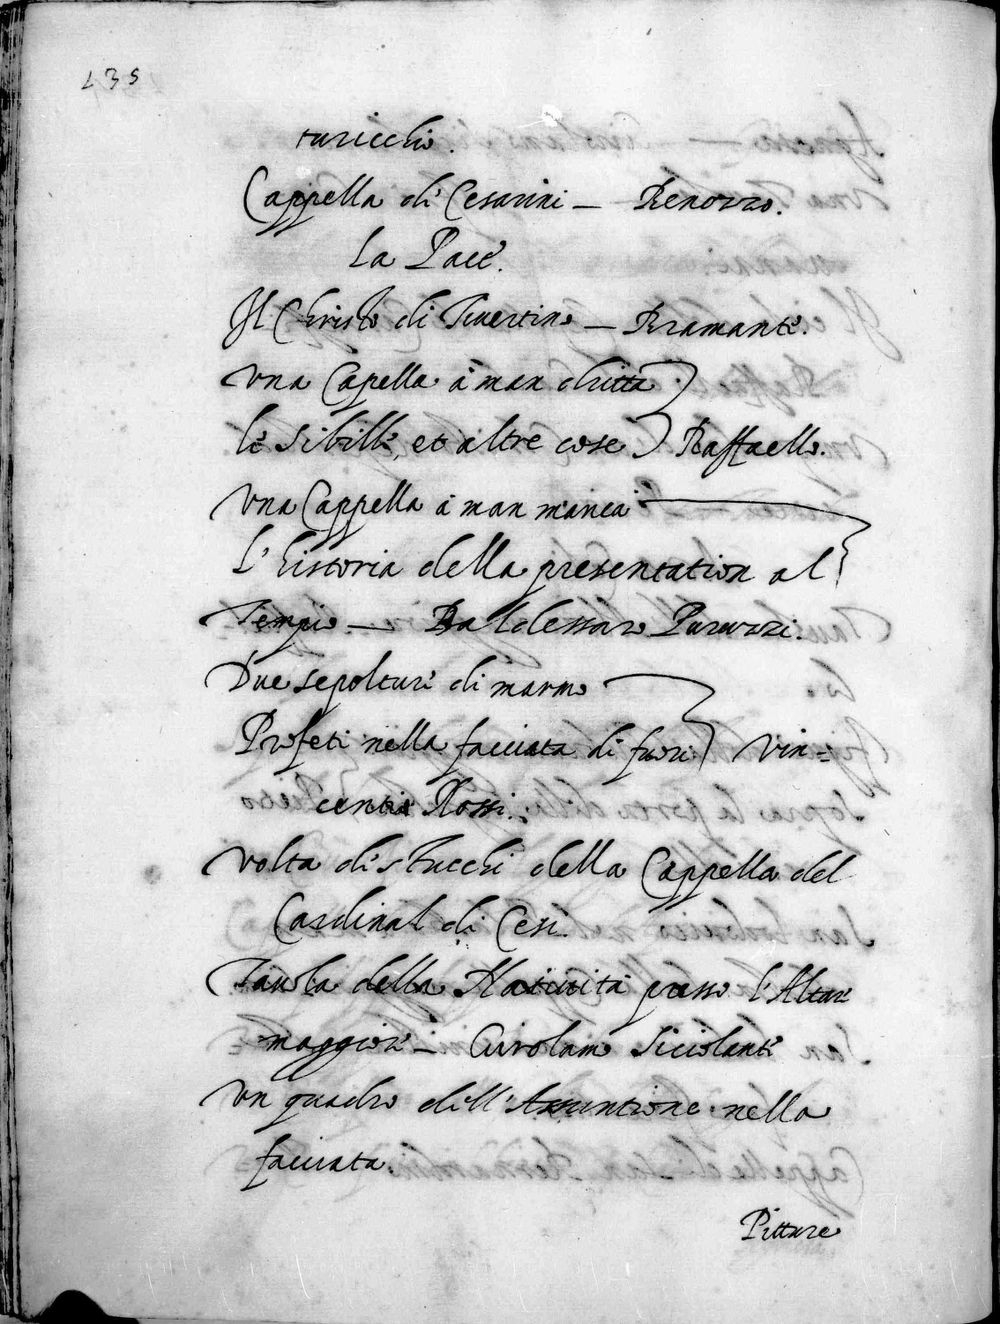 135
turicchio.
Cappella di Cesarini — Benozzo.
La Pace.
Il Christo di Tivertino — Bramante.
Una Capella à man dritta
le Sibille, et altre cose Raffaello.
Una Cappella à man manca
L'historia della presentation al
Tempio — Baldessaro Peruzzi.
Due sepolture di marmo
Profeti nella facciata di fuori Vin=
centio Rossi.
Volta di stucchi della Cappella del
Cardinal di Cesi.
Tavola della Natività presso l'Altar
maggiore — Girolamo Siciolante
Un quadro dell'Assuntione nella
facciata.
Pitture